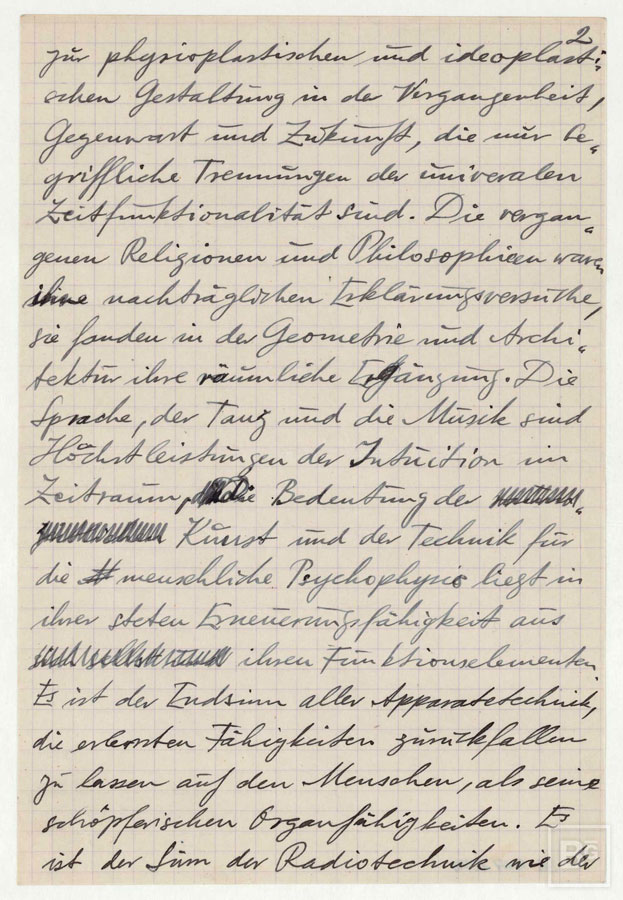 2
zur physioplastischen und ideoplasti-
schen Gestaltung in der Vergangenheit,
Gegenwart und Zukunft, die nur be-
griffliche Trennungen der univeralen
Zeitfunktionalität sind. Die vergan-
genen Religionen und Philosophieen waren
ihre nachträglichen Erklärungsversuche,
sie fanden in der Geometrie und Archi-
tektur ihre räumliche Ergänzung. Die
Sprache, der Tanz und die Musik sind
Höchstleistungen der Intuition im
Zeitraum, die Bedeutung der
Kunst und der Technik für
die menschliche Psychophysis liegt in
ihrer steten Erneuerungsfähigkeit aus
ihren Funktionselementen.
Es ist der Endsinn aller Apparatetechnik,
die erborgten Fähigkeiten zurückfallen
zu lassen auf den Menschen, als seine
schöpferischen Organfähigkeiten. Es
ist der Sinn der Radiotechnik wie der